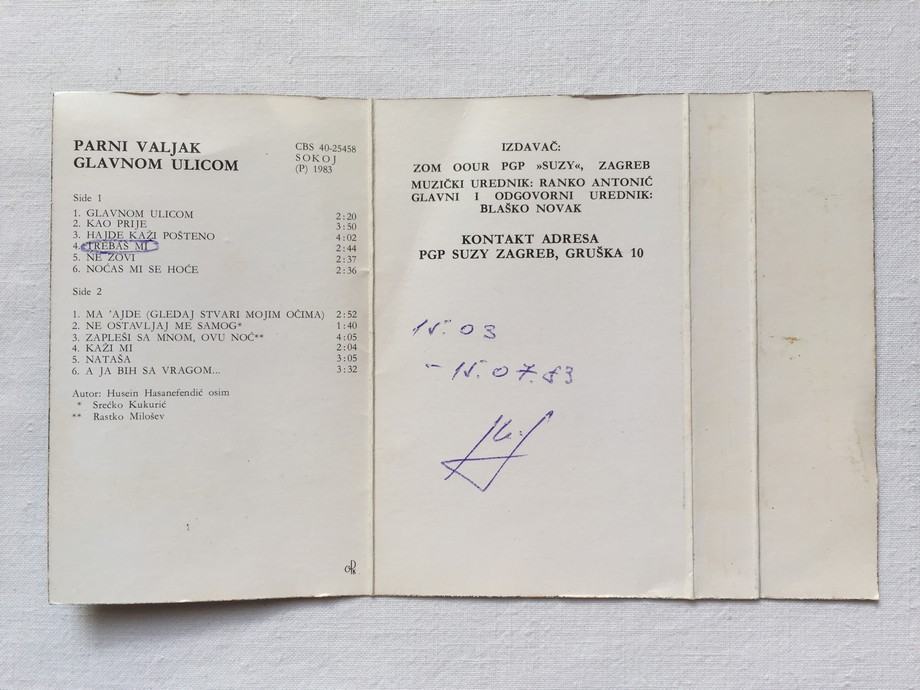 PARNI VALJAK
GLAVNOM ULICOM
CBS 40-25458
SOKOJ
(P) 1983
Side 1
1. GLAVNOM ULICOM 2:20
2. KAO PRIJE 3:50
3. HAJDE KAŽI POŠTENO 4:02
4. TREBAŠ MI 2:44
5. NE ZOVI 2:37
6. NOĆAS MI SE HOĆE 2:36
Side 2
1. MA 'AJDE (GLEDAJ STVARI MOJIM OČIMA) 2:52
2. NE OSTAVLJAJ ME SAMOG* 1:40
3. ZAPLEŠI SA MNOM, OVU NOĆ** 4:05
4. KAŽI MI 2:04
5. NATAŠA 3:05
6. A JA BIH SA VRAGOM... 3:32
Autor: Husein Hasanefendić osim
* Srećko Kukurić
** Rastko Milošev
IZDAVAČ:
ZOM OOUR PGP »SUZY«, ZAGREB
MUZIČKI UREDNIK: RANKO ANTONIĆ
GLAVNI I ODGOVORNI UREDNIK:
BLAŠKO NOVAK
KONTAKT ADRESA
PGP SUZY ZAGREB, GRUŠKA 10
15. 03
- 15. 07. 83